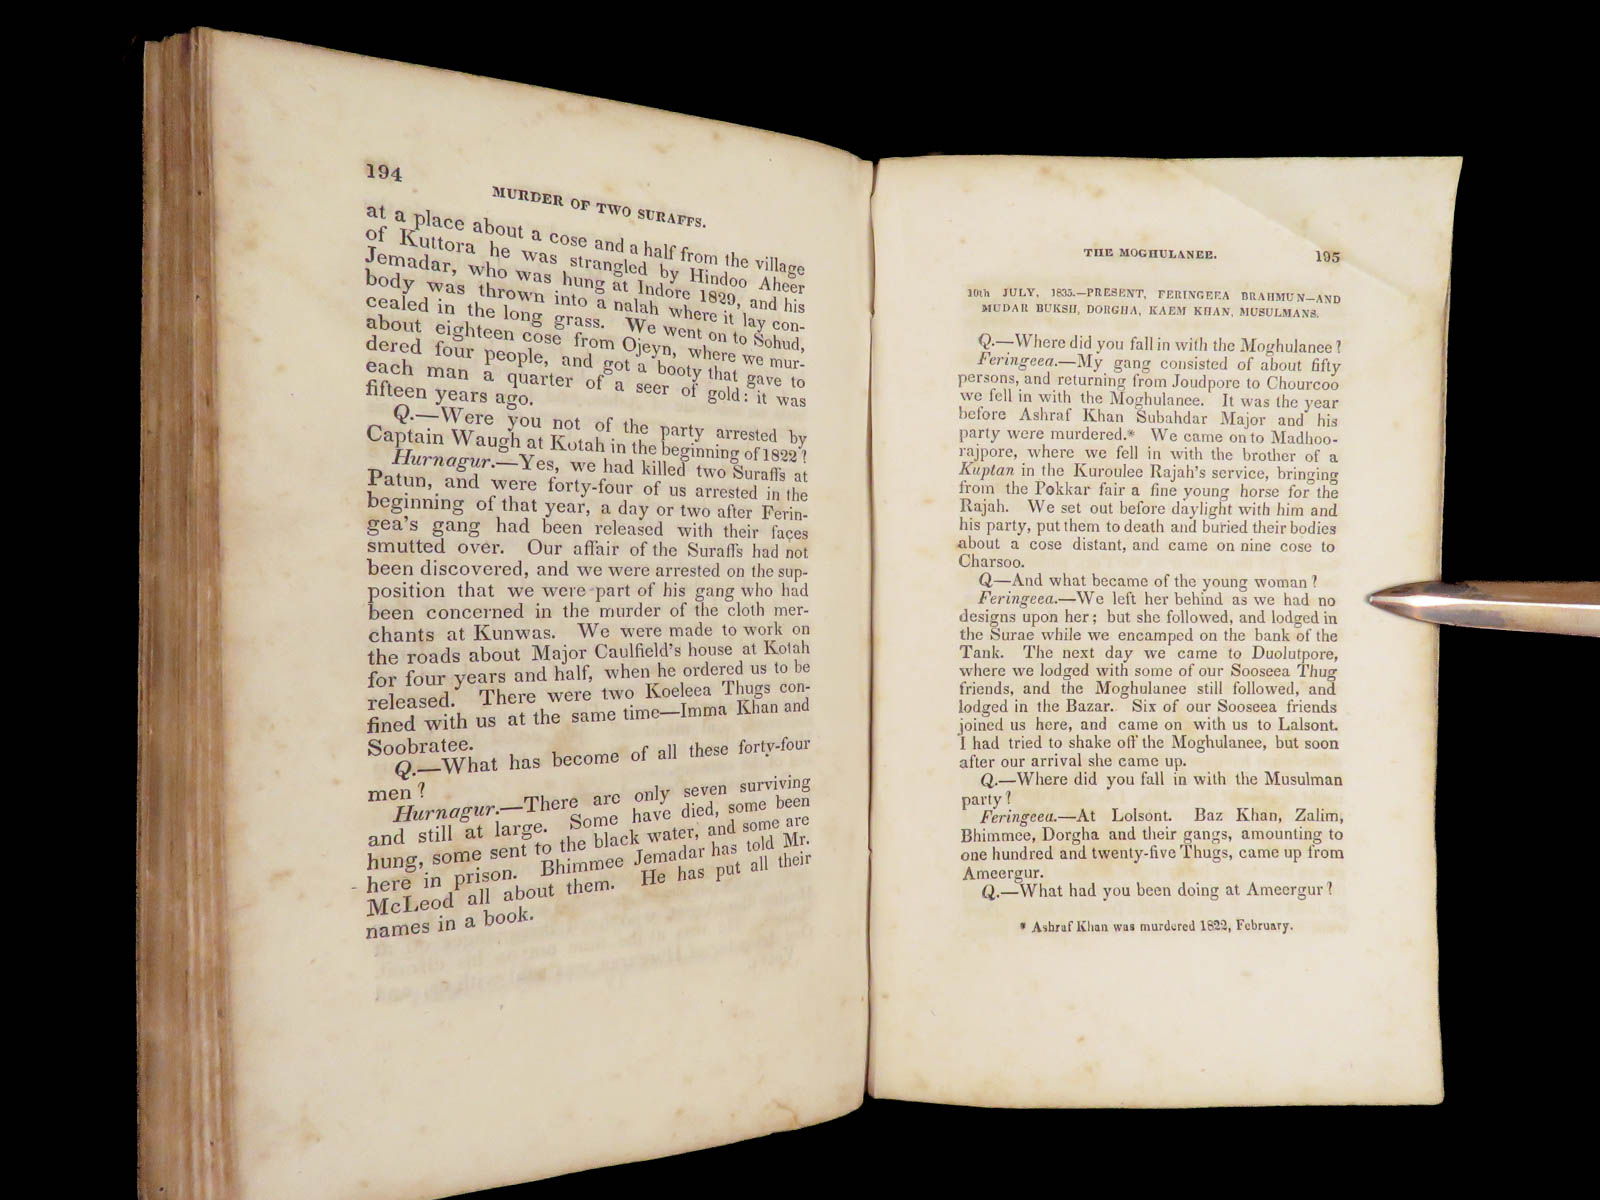 194
MURDER OF TWO SURAFFS.
at a place about a cose and a half from the village
of Kuttora he was strangled by Hindoo Aheer
Jemadar, who was hung at Indore 1829, and his
body was thrown into a nalah where it lay con-
cealed in the long grass. We went on to Sohud,
about eighteen cose from Ojeyn, where we mur-
dered four people, and got a booty that gave to
each man a quarter of a seer of gold: it was
fifteen years ago.
Q.—Were you not of the party arrested by
Captain Waugh at Kotah in the beginning of 1822?
Hurnagur.—Yes, we had killed two Suraffs at
Patun, and were forty-four of us arrested in the
beginning of that year, a day or two after Ferin-
gea's gang had been released with their faces
smutted over. Our affair of the Suraffs had not
been discovered, and we were arrested on the sup-
position that we were part of his gang who had
been concerned in the murder of the cloth mer-
chants at Kunwas. We were made to work on
the roads about Major Caulfield's house at Kotah
for four years and half, when he ordered us to be
released. There were two Koeleea Thugs con-
fined with us at the same time—Imma Khan and
Soobratee.
Q.—What has become of all these forty-four
men?
Hurnagur.—There are only seven surviving
and still at large. Some have died, some been
hung, some sent to the black water, and some are
here in prison. Bhimmee Jemadar has told Mr.
McLeod all about them. He has put all their
names in a book.
THE MOGHULANEE. 195
10th JULY, 1835.—PRESENT, FERINGEEA BRAHMUN—AND
MUDAR BUKSH, DORGHA, KAEM KHAN, MUSULMANS.
Q.—Where did you fall in with the Moghulanee?
Feringeea.—My gang consisted of about fifty
persons, and returning from Joudpore to Chourcoo
we fell in with the Moghulanee. It was the year
before Ashraf Khan Subahdar Major and his
party were murdered.* We came on to Madhoo-
rajpore, where we fell in with the brother of a
Kuptan in the Kuroulee Rajah's service, bringing
from the Pokkar fair a fine young horse for the
Rajah. We set out before daylight with him and
his party, put them to death and buried their bodies
about a cose distant, and came on nine cose to
Charsoo.
Q—And what became of the young woman?
Feringeea.—We left her behind as we had no
designs upon her; but she followed, and lodged in
the Surae while we encamped on the bank of the
Tank. The next day we came to Duolutpore,
where we lodged with some of our Sooseea Thug
friends, and the Moghulanee still followed, and
lodged in the Bazar. Six of our Sooseea friends
joined us here, and came on with us to Lalsont.
I had tried to shake off the Moghulanee, but soon
after our arrival she came up.
Q.—Where did you fall in with the Musulman
party?
Feringeea.—At Lolsont. Baz Khan, Zalim,
Bhimmee, Dorgha and their gangs, amounting to
one hundred and twenty-five Thugs, came up from
Ameergur.
Q.—What had you been doing at Ameergur?
* Ashraf Khan was murdered 1822, February.